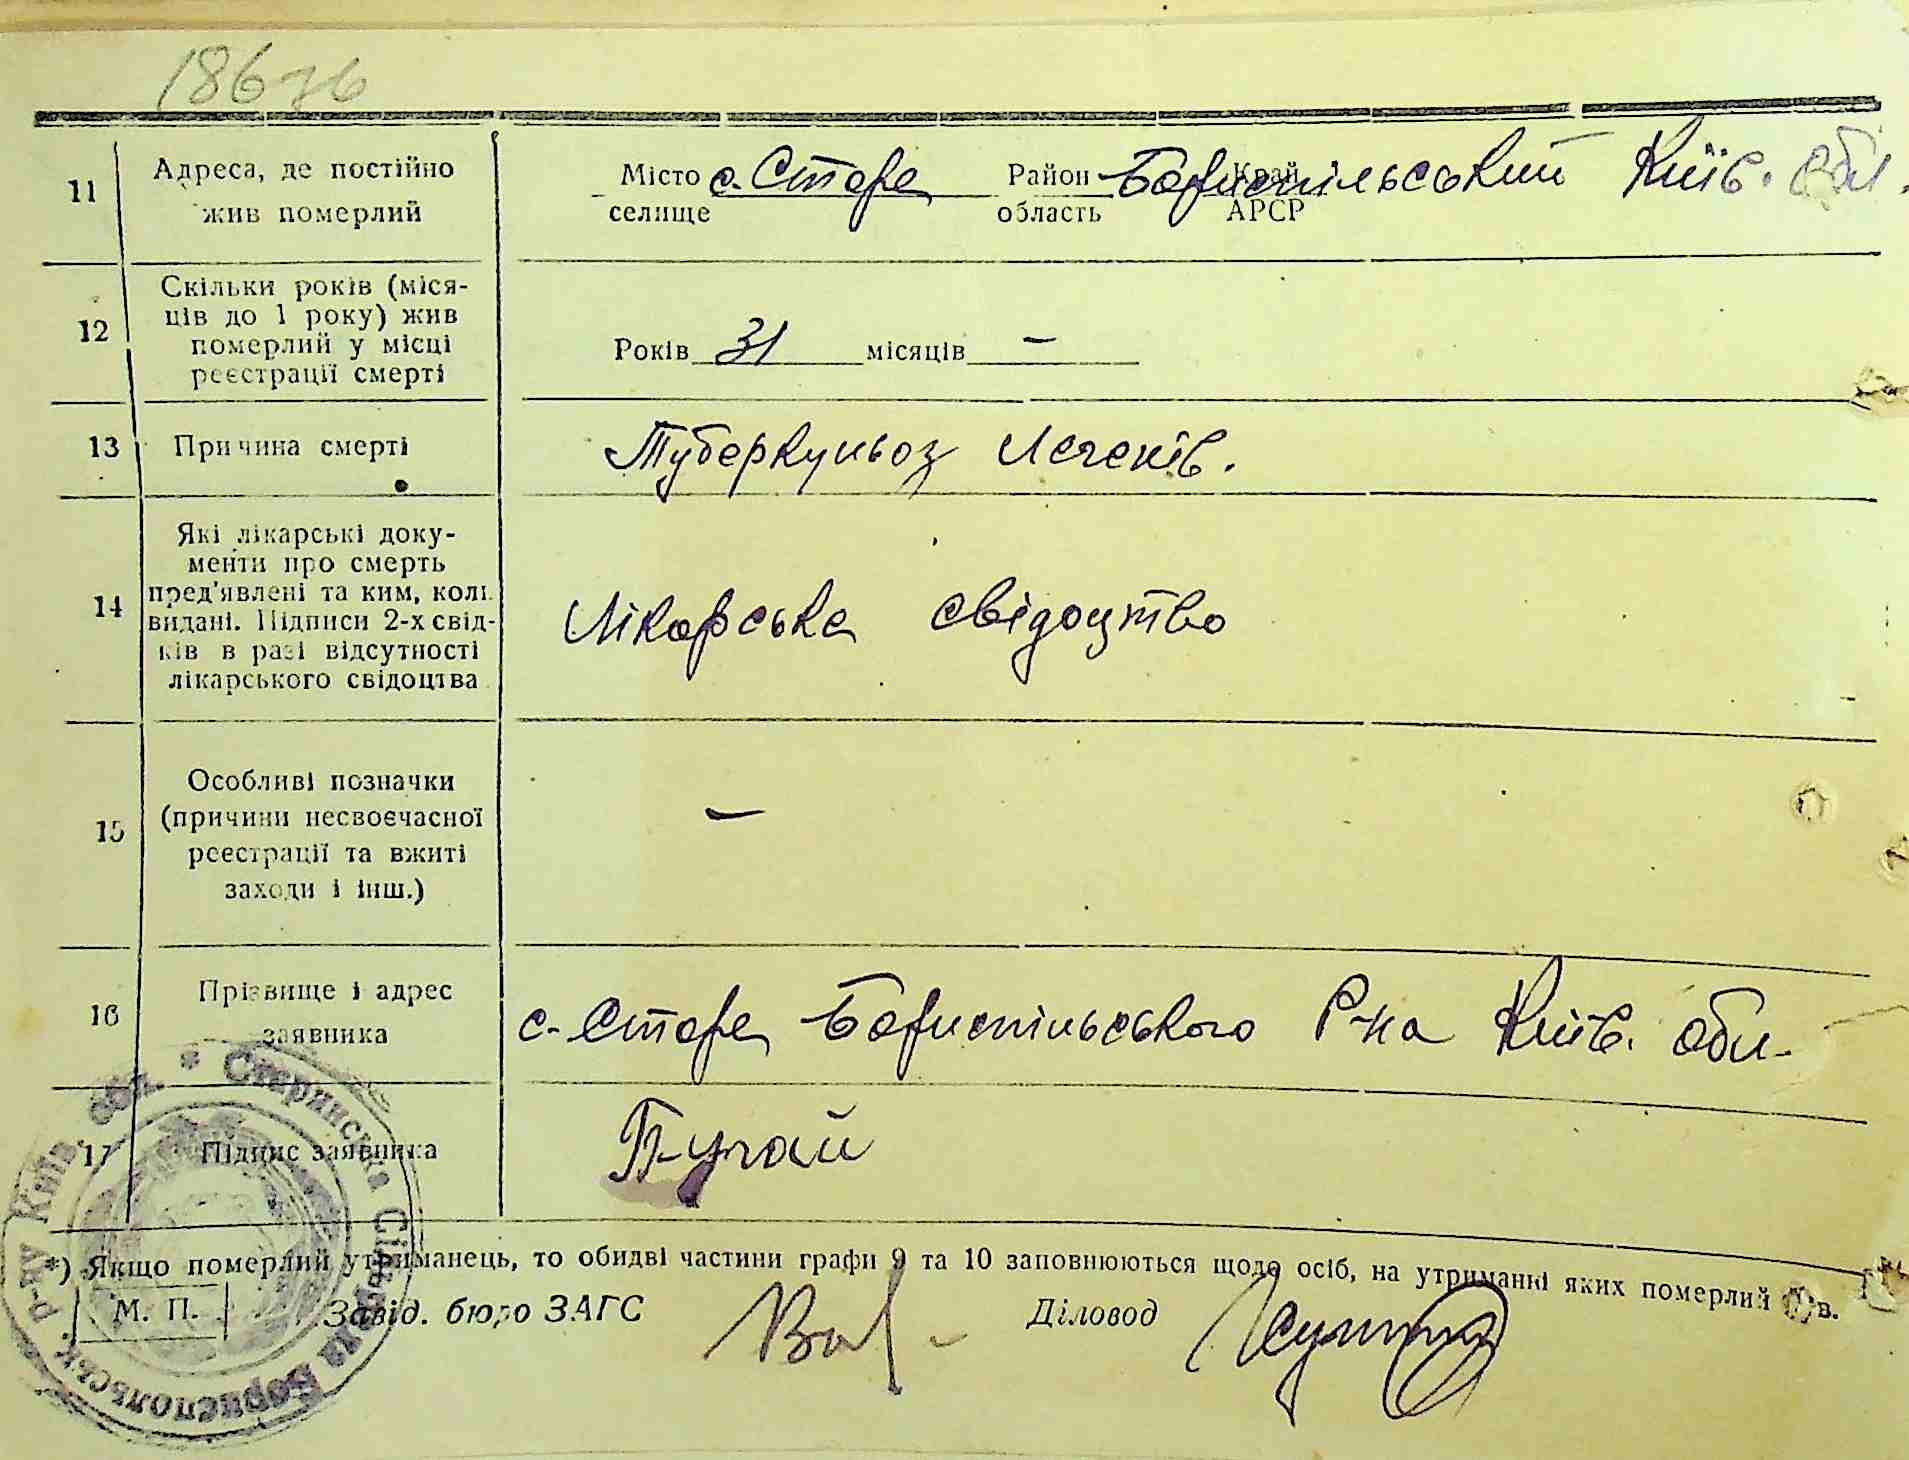 18676
11 Адреса, де постійно жив померлий
Місто селище с. Старе Район область Бориспільський Край АРСР Київ. обл.
12 Скільки років (міся-
ців до 1 року) жив
померлий у місці
реєстрації смерті
Років 31 місяців –
13 Причина смерті
Туберкульоз легенів.
14 Які лікарські доку-
менти про смерть
пред'явлені та ким, коли
видані. Підписи 2-х свід-
ків в разі відсутності
лікарського свідоцтва
Лікарська свідоцтво
15 Особливі позначки
(причини несвоєчасної
реєстрації та вжиті
заходи і інш.)
–
16 Прізвище і адрес
заявника
с. Старе Бориспільського р-на Київ. обл.
17 Підпис заявника
Пугай
*) Якщо померлий утриманець, то обидві частини графи 9 та 10 заповнюються щодо осіб, на утриманні яких померлий був.
М. П. Завід. бюро ЗАГС Діловод
Старинська Сільрада Бориспольськ. р-ну Київ. обл.